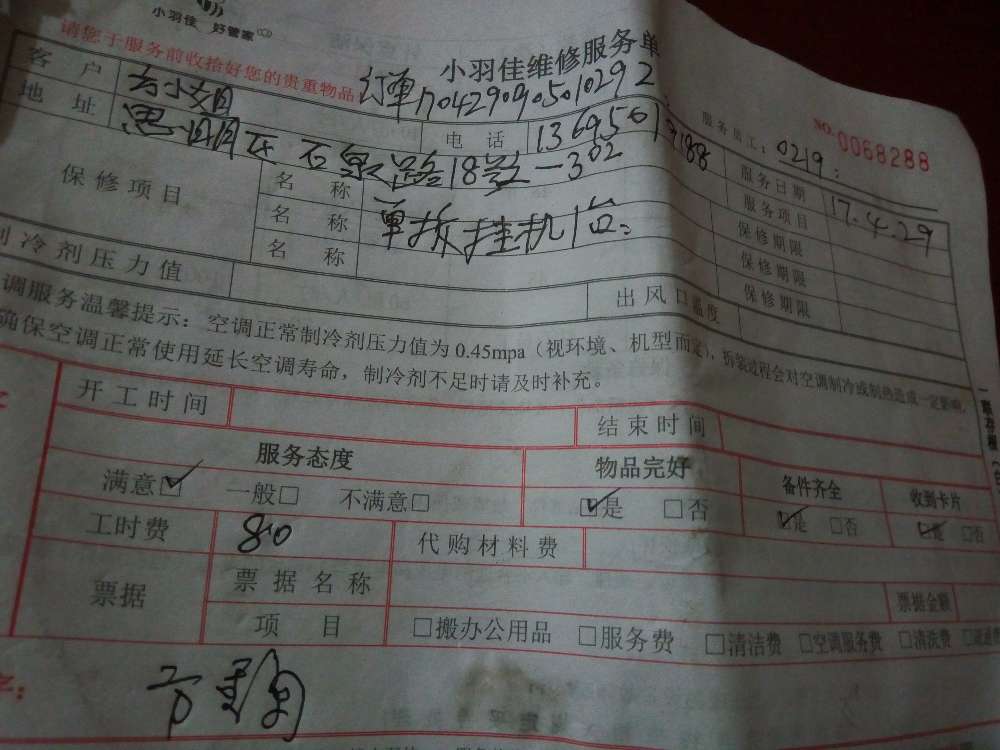 小羽佳 好管家
小羽佳维修服务单
请您于服务前收拾好您的贵重物品
订单1704290905010292
服务员工：0219
NO.0068288
客户
电话 1369501
服务日期 17.4.29
地址 思明区石泉路18号-302
服务项目
保修项目 名称 单拆挂机1台 保修期限
名称 保修期限
名称 保修期限
制冷剂压力值 出风口温度
调服务温馨提示：空调正常制冷剂压力值为0.45mpa（视环境、机型而定），拆装过程会对空调制冷或制热造成一定影响，
确保空调正常使用延长空调寿命，制冷剂不足时请及时补充。
开工时间 结束时间
服务态度 物品完好 备件齐全 收到卡片
满意☑ 一般□ 不满意□ ☑是 □否 ☑是 □否 ☑是 □否
工时费 80 代购材料费
票据 票据名称 票据金额
项目 □搬办公用品 □服务费 □清洁费 □空调服务费 □清洗费